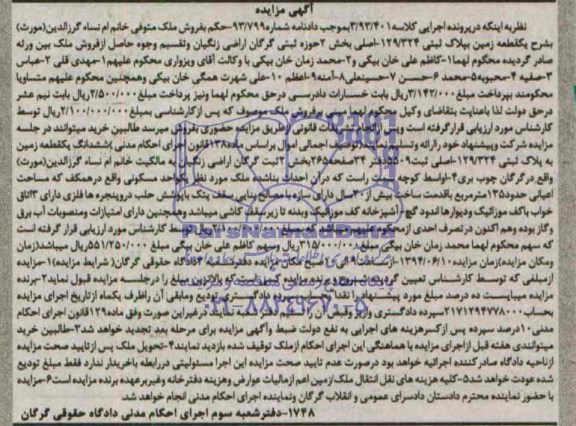 آگهی مزایده
نظر به اینکه در پرونده اجرایی کلاسه ۳/۹۳/۴۰۱ بموجب دادنامه شماره ۹۳/۷۹۹- حکم بفروش ملک متوفی خانم ام نساء گرزالدین(مورث)
بشرح یکقطعه زمین بپلاک ثبتی ۱۲۹/۳۲۴-اصلی بخش ۲حوزه ثبتی گرگان اراضی زنگیان وتقسیم وجوه حاصل ازفروش ملک بین ورثه
صادر گردیده محکوم لهما۱-کاظم علی خان بیکی و۲-محمد زمان خان بیکی با وکالت آقای ویزواری محکوم علیهم۱-مهدی قلی ۲-عباس
۳-صفیه ۴-محبوبه۵-محمد ۶-حسن ۷-حسینعلی۸-آمنه۹-اعظم ۱۰-علی شهرت همگی خان بیکی وهمچنین محکوم علیهم متساویا
محکومند بپرداخت مبلغ۳/۱۴۲/۰۰۰ریال بابت خسارات دادرسی درحق محکوم لهما ونیز پرداخت مبلغ۲/۵۰۰/۰۰۰ریال بابت نیم عشر
درحق دولت لذا باعنایت بتقاضای وکیل محکوم لهما مبنی برفروش ملک موصوف که پس ازکارشناسی بمبلغ۲/۱۰۰/۰۰۰/۰۰۰ریال توسط
کارشناس مورد ارزیابی قرارگرفته است وپس ازانجام تشریفات قانونی ازطریق مزایده حضوری بفروش میرسد طالبین خرید میتوانند در جلسه
مزایده شرکت وپیشنهاد خود راارائه وتسلیم نمایند(توصیف اجمالی اموال براساس ماده۱۳۸قانون اجرای احکام مدنی )ششدانگ یکقطعه زمین
به پلاک ثبتی ۱۲۹/۳۲۴-اصلی ثبت۵۵۰۹دفتر ۳۴صفحه۲۶۵بخش ۲ثبت گرگان اراضی زنگیان به مالکیت خانم ام نساء گرزالدین(مورث)
واقع درگرگان چوب بری۴-اواسط کوچه سمت راست است که درآن احداث بناشده ملک مورد نظر یکواحد مسکونی واقع درهمکف که مساحت
اعیانی حدود۱۳۵مترمربع باقدمت ساخت بیش از۳۰سال دارای سازه بامصالح بنایی سقف پتک باپوشش حلب دروپنجره ها فلزی دارای ۳اتاق
خواب باکف موزائیک ودیوارها اندود گچ- آشپزخانه کف موزائیک وبدنه تا زیرسقف کاشی میباشد وهمچنین دارای امتیازات ومنصوبات آب برق
وگاز بوده وهم اکنون درتصرف احدی ازمحکوم توسط کارشناس مورد ارزیابی قرار گرفته است
که سهم محکوم لهما محمد زمان خان بیکی مبلغ ۳۱۵/۰۰۰/۰۰۰ریال وسهم کاظم علی خان بیکی مبلغ ۵۵۱/۲۵۰/۰۰۰ریال میباشد(زمان
ومکان مزایده)زمان مزایده ۱۳۹۴/۰۶/۱۰ازساعت دادگاه حقوقی گرگان( شرایط مزایده)۱-مزایده
ازمبلغی که توسط کارشناس تعیین گردیده شروع وبرنده مزایده کسی است که بالاترین مبلغ را درجلسه مزایده قبول نماید۲-برنده
مزایده میبایست ده درصد مبلغ مورد پیشنهاد را نقدا بحساب سپرده دادگستری تودیع ومابقی آن راظرف یکماه ازتاریخ اجرای مزایده
بحساب ۲۱۷۱۲۹۴۷۷۸۰۰۰سپرده دادگستری واریز وفیش آن را تسلیم دفتر نماید درغیراین صورت وفق ماده۱۲۹قانون اجرای احکام
مدنی۱۰درصد سپرده پس ازکسرهزینه های اجرایی به نفع دولت ضبط وآگهی مزایده برای مرحله بعد تجدید خواهد شد۳-طالبین خرید
میتوانندی هفته قبل ازاجرای مزایده با هماهنگی این اجرای احکام ازملک توقیف شده بازدید نمایند۴-تحویل ملک پس ازتایید صحت مزایده
ازناحیه دادگاه صادرکننده اجرائیه خواهد بود درصورت عدم تایید صحت مزایده این اجرا مسئولیتی دررابطه باخریدار ندارد فقط مبلغ تودیع
شده عودت خواهد شد۵-کلیه هزینه های نقل انتقال ملک/زمین اعم ازمالیات عوارض وهزینه دفترخانه وغیربرعهده برنده مزایده است۶-مزایده
با حضور نماینده محترم دادستان دادسرای عمومی و انقلاب گرگان ونماینده اجرای احکام مدنی انجام خواهد شد.
۱۷۴۸-دفترشعبه سوم اجرای احکام مدنی دادگاه حقوقی گرگان
ParsNamadData
۰۲۱-۸۸۳۴۹۶۷۰-۵